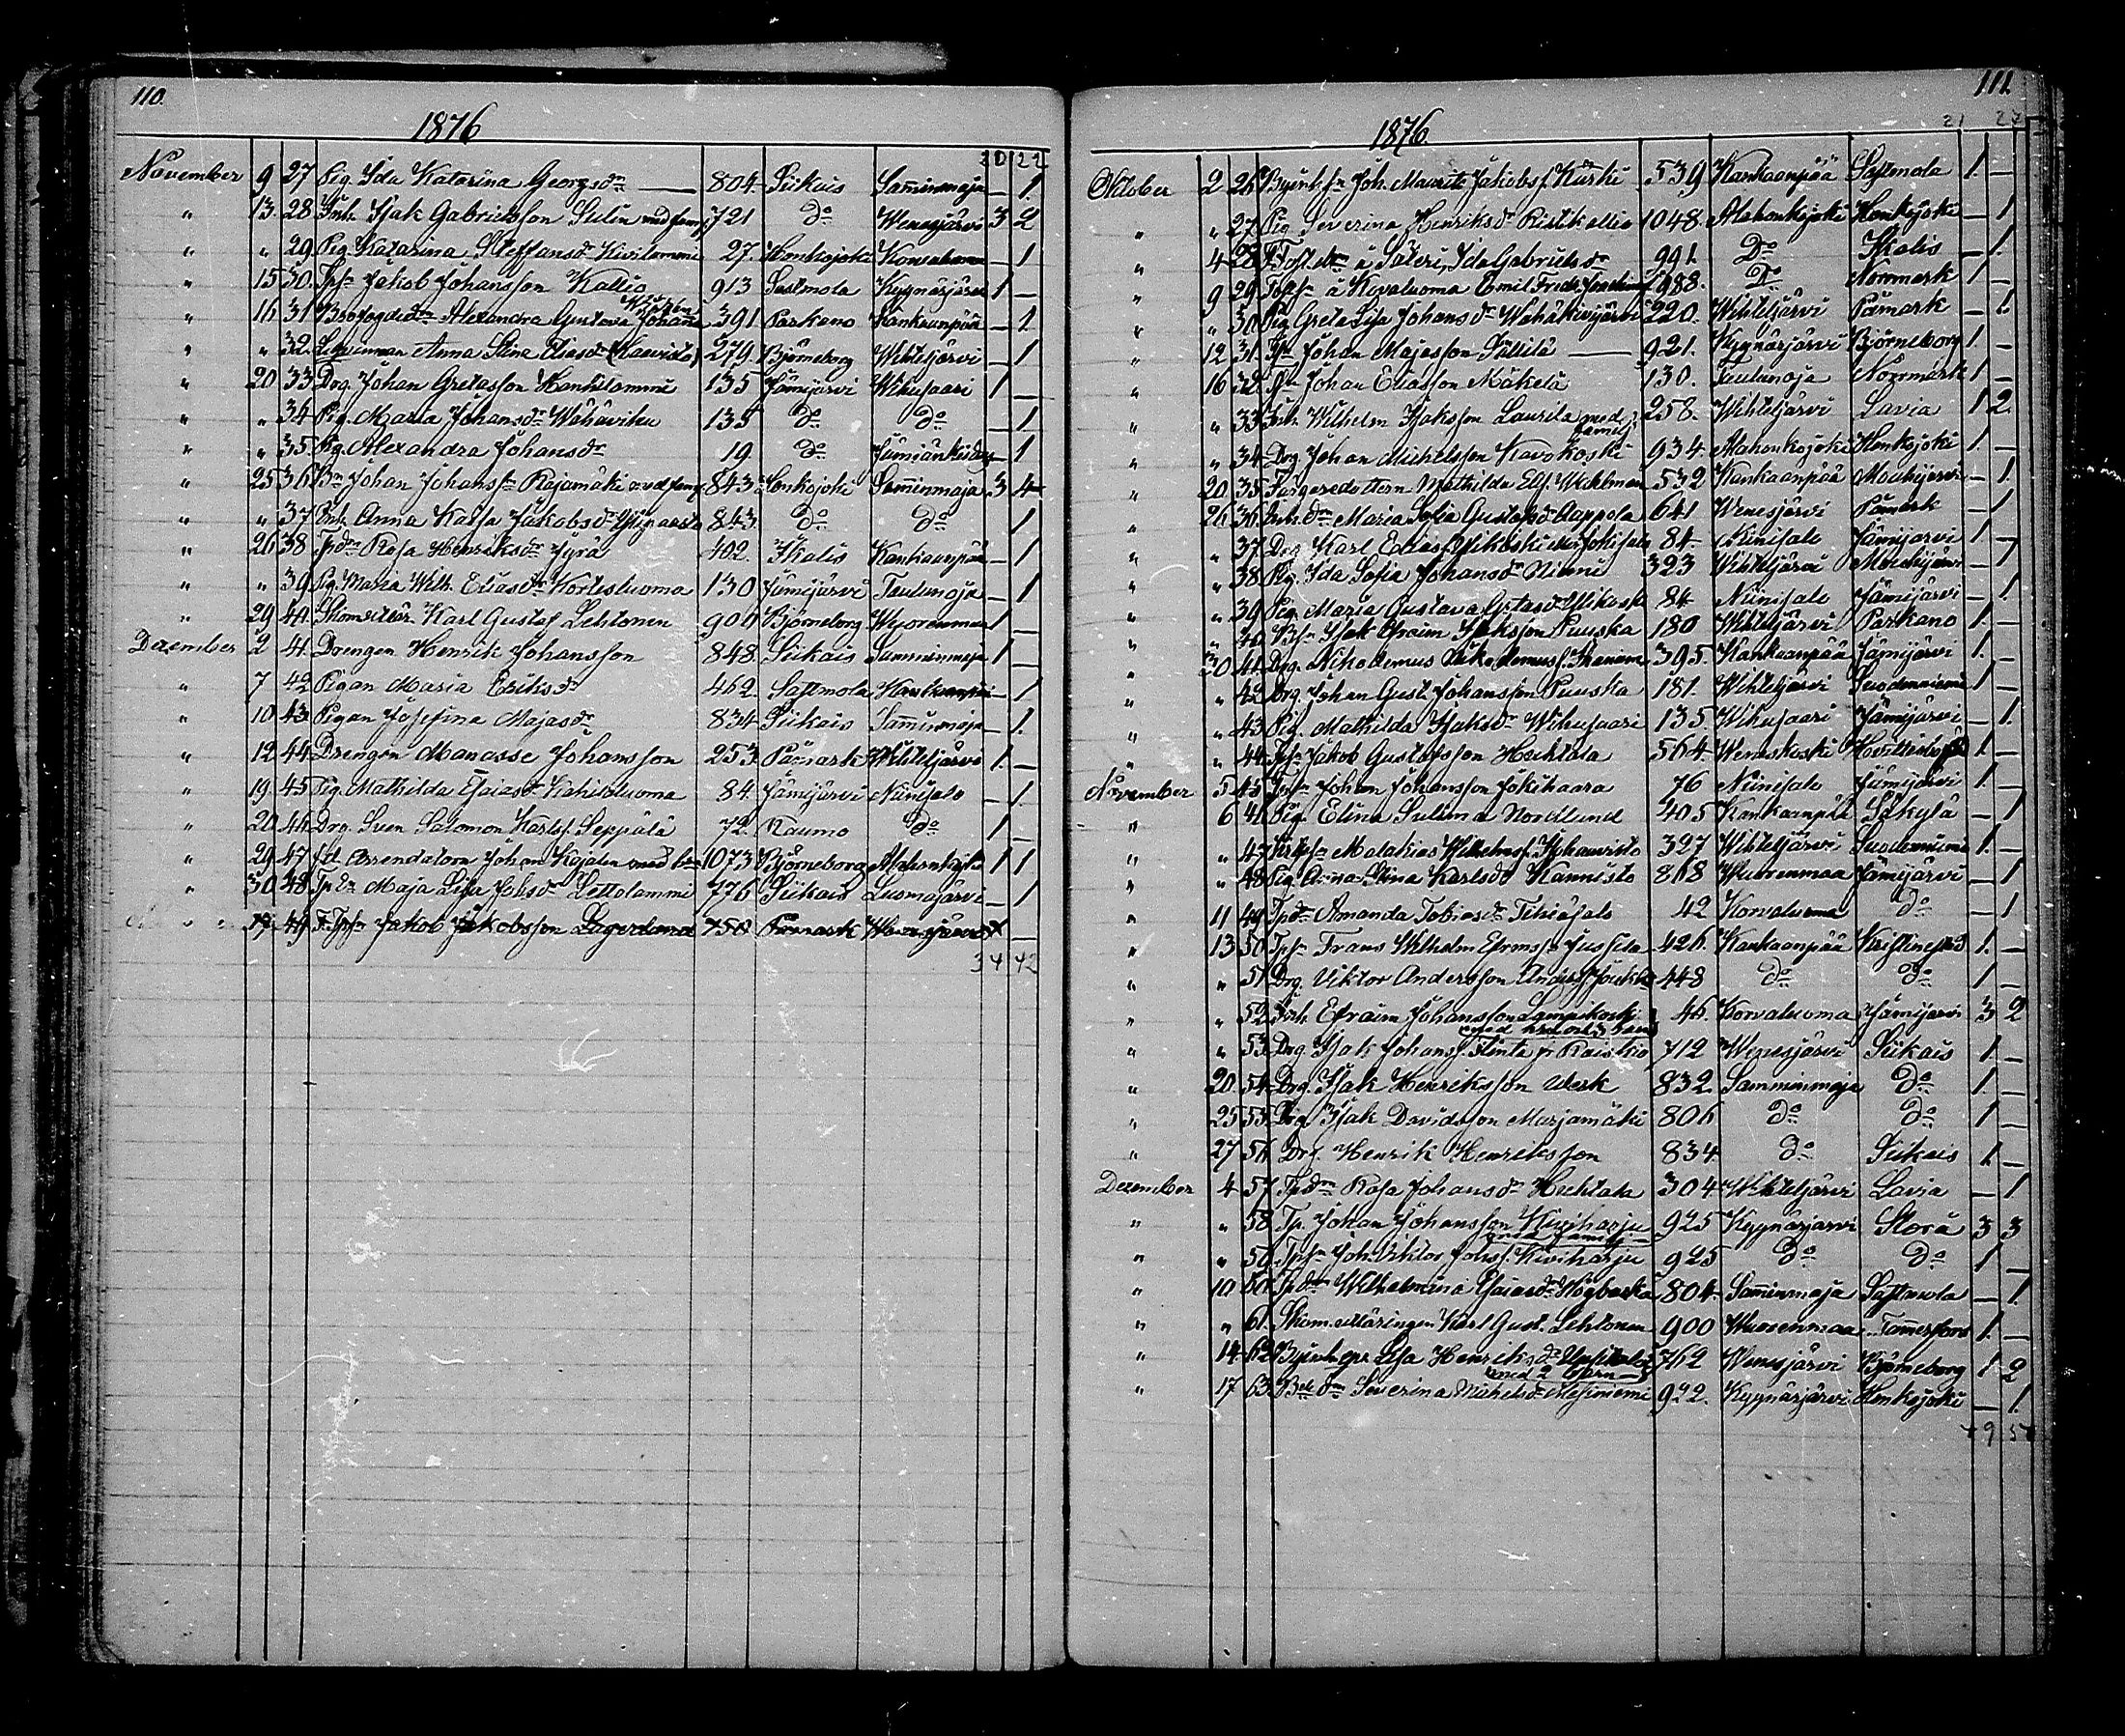 110.
1876
20 22
November 9 27 Pig. Ida Katarina Georgsdr 804. Siikais Samminmaja — 1.
" 13. 28 Inh. Isak Gabrielsson Sulin med famj. 721 do Wenesjärvi 3 2
" " 29 Pig. Katarina Steffansdr Kivilammi 27. Honkojoki — 1
" 15 30. Jakob Johansson Kallio 913 Sastmola Kyynärjärvi 1 —
" 16 31 Alexandra Gustava Johansdr 391 Parkano Kankaanpää — 1
" " 32 Anna Stina Eliasdr (Laurila) 279. Björneborg Wihteljärvi — 1
" 20 33 Drg. Johan Gretasson Hanhilammi 135 Jämijärvi Wihusaari 1 —
" " 34 Pig. Maria Johansdr Wähävihu 135 do do — 1
" " 35 Pig. Alexandra Johansdr 19 do — 1
" 25 36 Johan Johanss. Rajamäki med famj. 843 Honkojoki Samminmaja 3 4
" " 37 Inh. Anna Kaisa Jakobsdr 843. do do 1
" 26 38 Rosa Henriksdr Jyrä 402. Ikalis Kankaanpää — 1
" " 39 Pig. Maria Wilh. Eliasdr Kortesluoma 130 Jämijärvi Taulunoja — 1
" 29 40. Karl Gustaf Lehtonen 900 Björneborg 1 —
Dezember 2 41. Drengen Henrik Johansson 848. Siikais Samminmaja 1 —
" 7 42 Pigan Maria Eriksdr 462. Sastmola Kankaanpää — 1
" 10 43 Pigan Josefina Majasdr 834 Siikais Samminmaja — 1.
" 12 44 Drengen Manasse Johansson 253. Påmark Wihteljärvi 1. —
" 19 45 Pig. Mathilda Esaiasdr Kahiluoma 84. Jämijärvi Niinisalo — 1.
" 20 46 Drg. Sven Salomon Karlss. Seppälä 72. Raumo do 1 —
" 29 47 fd. Arrendatorn Johan Kojalin med 1073 Björneborg Alahonkojoki 1 1
" 30 48 Maja Lisa Johsdr Lettolammi 776 Siikais Luomajärvi — 1
49 Jakob Jakobsson Lagerlund 758 Påmark Wenesjärvi 1 —
34 42
111.
1876.
21 27
Oktober 2 26 Joh. Maurits Jakobss. Kurki 539 Kankaanpää Sastmola 1. —
" " 27 Pig. Severina Henriksdr Ristikallio 1048. Alahonkojoki Honkojoki — 1
" 4 28 Säteri, Ida Gabrielsdr 991. Do Ikalis — 1.
" 9 29 à Kovaluoma Emil Fredr. 988. Do Norrmark 1
" " 30 Pig. Greta Lisa Johansdr 220. Wihteljärvi Påmark — 1.
" 12 31 Johan Majasson Tällilä 921. Kyynärjärvi Björneborg 1. —
" 16 32 Johan Eliasson Mäkelä 130. Taulunoja Norrmark 1 —
" " 33 Inh. Wilhelm Isaksson Laurila med familj 258. Wihteljärvi Lavia 1 2.
" " 34 Drg. Johan Michelsson Kavokoski 934. Alahonkojoki Honkojoki 1. —
" 20 35 Färgaredottern Mathilda Elis. Wahlman 532 Kankaanpää Mouhijärvi — 1.
" 26 36 Maria Sofia Gustafsdr Aappola 641 Wenesjärvi Påmark — 1.
" " 37 Drg. Karl Eliass. Ylikoski 84. Niinisalo Jämijärvi 1 —
" " 38 Pig. Ida Sofia Johansdr Niemi 323 Wihteljärvi Mouhijärvi — 1
" " 39 Pig. Maria Gustava Gretasdr Ylikoski 84 Niinisalo Jämijärvi — 1
" " 40 Isak Efraim Isaksson Puuska 180 Wihteljärvi Parkano 1. —
" 30 41 Drg. Nikodemus Nikodemuss. 395. Kankaanpää Jämijärvi 1. —
" " 42 Drg. Johan Gust. Johansson Puuska 181. Wihteljärvi Suodenniemi 1 —
" " 43 Pig. Mathilda Isaksdr Wihusaari 135 Wihusaari Jämijärvi — 1.
" " 44 Jakob Gustafsson Huhtala 564. Weneskoski 1 —
November 5 45 Johan Johansson Jokihaara 76 Niinisalo Jämijärvi 1. —
" 6 46 Pig. Elina Sulina Nordlund 405 Kankaanpää Säkylä — 1
" " 47 Malakias Wilhelmss. 327 Wihteljärvi Suodenniemi 1. —
" " 48 Pig. Anna Stina Karlsdr Kannisto 868 Wuorenmaa Jämijärvi — 1
" 11 49 Amanda Tobiasdr 42 Korvaluoma do — 1
" 13 50 Frans Wilhelm Jussila 426. Kankaanpää Kristinestad 1. —
" " 51 Drg. Viktor Andersson 448 do do 1 —
" " 52 Inh. Efraim Johansson Lampikoski med hustru o 3 barn 46. Korvaluoma Jämijärvi 3 2
" " 53 Drg. Isak Johanss. Raiskio 712 Wenesjärvi Siikais 1. —
" 20. 54 Drg. Isak Henriksson Werk 832 Samminmaja do 1. —
" 25 55 Drg. Isak Davidsson Marjamäki 806 do do 1 —
" 27 56 Drg. Henrik Henriksson 834 do Siikais 1. —
Dezember 4 57 Rosa Johansdr Huhtala 304 Wihteljärvi Lavia — 1
" " 58 Tp. Johan Johansson Kiviharju med familj 925 Kyynärjärvi Storå 3 3
" " 59 Joh. Viktor Johss. Kiviharju 925 do do 1 —
" 10 60 Wilhelmina Esaiasdr Högbacka 804. Samminmaja Sastmola — 1.
" " 61. Karl Gust. Lehtonen 900 Wuorenmaa Tammerfors 1. —
" 14 62 Lisa Henriksdr med 2 barn 762 Wenesjärvi Björneborg 1 2
" 17 63. Severina Michelsdr 922. Kyynärjärvi Honkojoki — 1.